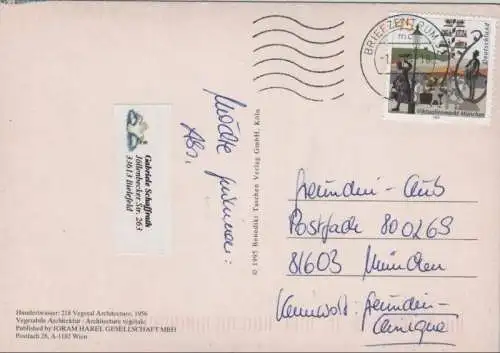 BRIEFZENTRUM
Deutschland
Viktualienmarkt München
Möchte gewinnen:
Abs.
Gabriele Schaffrath
Jöllenbecker Str. 263
33613 Bielefeld
© 1995 Benedikt Taschen Verlag GmbH, Köln
Freundin-Club
Postfach 800269
81603 München
Kennwort: Freundin-
Clinique
Hundertwasser: 218 Vegetal Architecture, 1956
Vegetabile Architektur / Architecture végétale
Published by JGRAM HAREL GESELLSCHAFT MBH
Postfach 28, A-1182 Wien